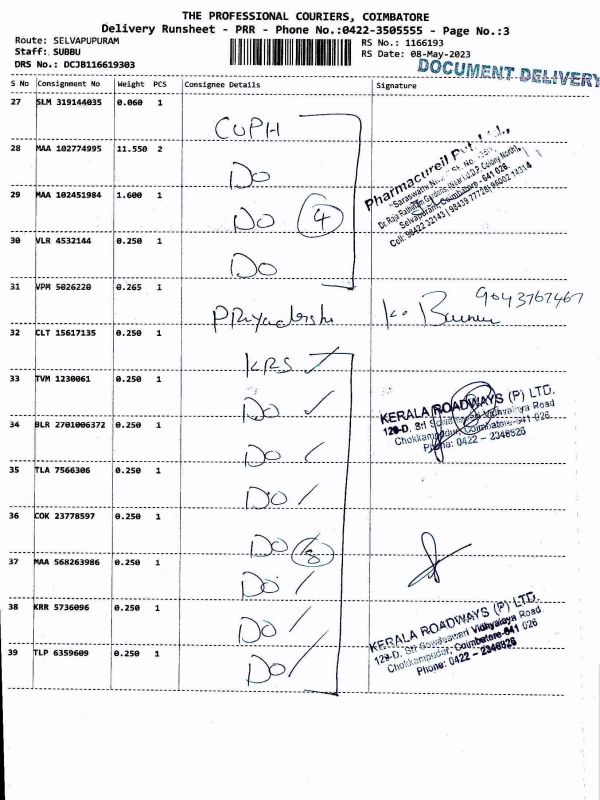 THE PROFESSIONAL COURIERS, COIMBATORE
Delivery Runsheet - PRR - Phone No.:0422-3505555 - Page No.:3
Route: SELVAPUPURAM
RS No.: 1166193
Staff: SUBBU
RS Date: 08-May-2023
DRS No.: DCJB116619303
DOCUMENT DELIVERY
S No Consignment No Weight PCS Consignee Details Signature
27 SLM 319144035 0.060 1
CUPH
28 MAA 102774995 11.550 2
Do
29 MAA 102451984 1.600 1
Do 4
30 VLR 4532144 0.250 1
Do
Pharmacureil Pvt. Ltd.,
Selvapuram, Coimbatore - 641 026.
Cell: 98422 32143 | 98439 77728| 96002 14314
31 VPM 5026220 0.265 1
PRiyadarshi
9043767467
32 CLT 15617135 0.250 1
KRS
33 TVM 1230061 0.250 1
Do
34 BLR 2701006372 0.250 1
Do
KERALA ROADWAYS (P) LTD.
129-D, Sri Gowdeswari Vidhyalaya Road
Chokkampudur, Coimbatore-641 026
Phone: 0422 - 2348526
35 TLA 7566306 0.250 1
Do
36 COK 23778597 0.250 1
Do 8
37 MAA 568263986 0.250 1
Do
38 KRR 5736096 0.250 1
Do
39 TLP 6359609 0.250 1
Do
KERALA ROADWAYS (P) LTD.
129-D, Sri Gowdeswari Vidhyalaya Road
Chokkampudur, Coimbatore-641 026
Phone: 0422 - 2348526